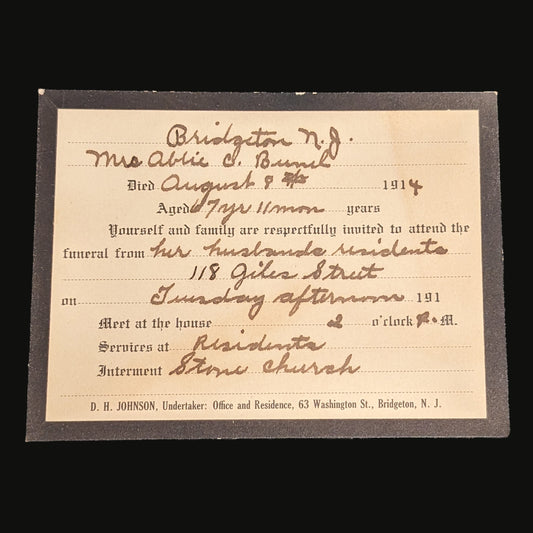 Bridgeton N.J.
Mrs Abbie C.
Died August 8 1914
Aged 67 yr 11 mon years
Yourself and family are respectfully invited to attend the
funeral from her husbands residents
118 Giles Street
on Tuesday afternoon 191
Meet at the house 2 o'clock P. M.
Services at Residents
Interment Stone Church
D. H. JOHNSON, Undertaker: Office and Residence, 63 Washington St., Bridgeton, N. J.